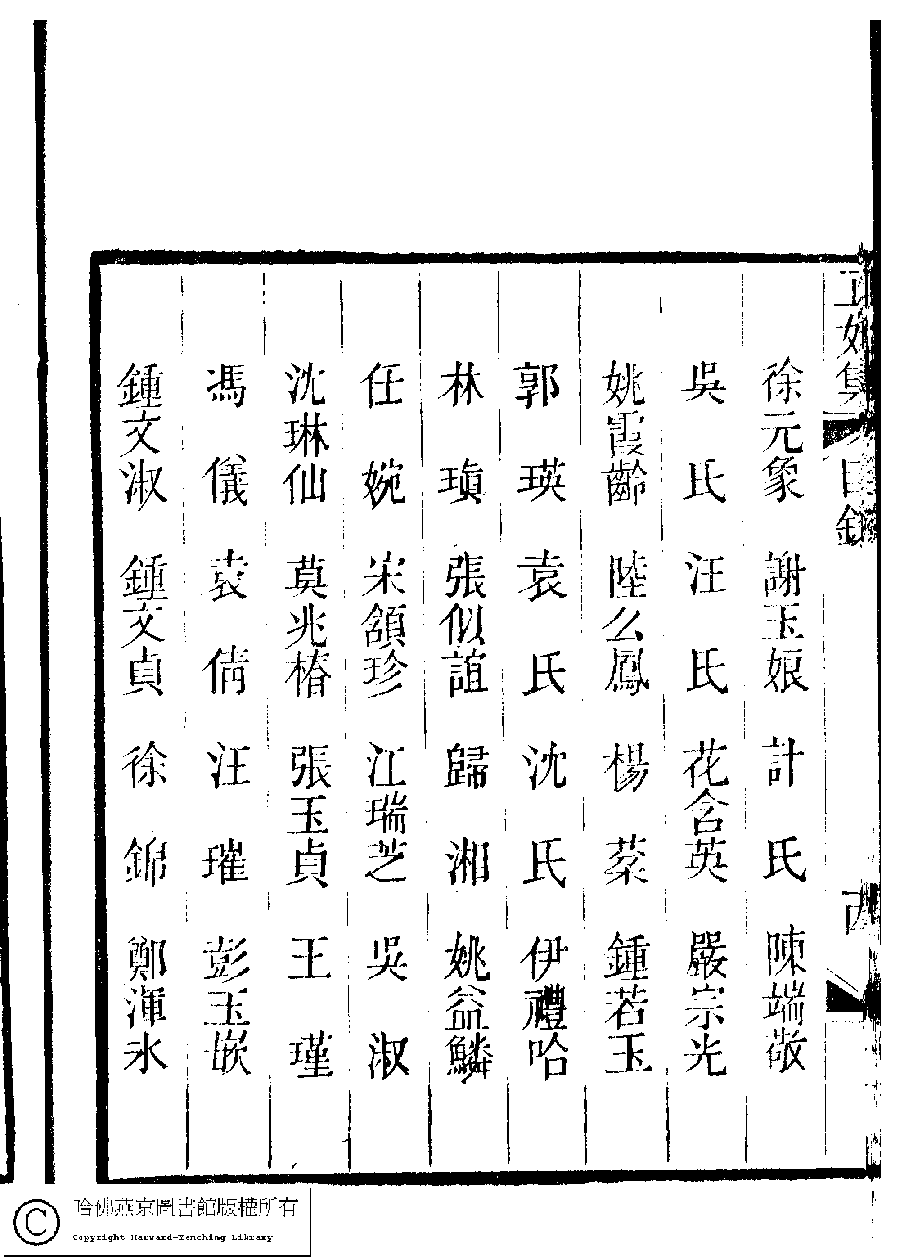 徐元象 謝玉娘 計氏 陳端敬
吳氏 汪氏 花含英 嚴宗光
姚霞齡 陸么鳳 楊蕖 鍾若玉
郭瑛 袁氏 沈氏 伊禮哈
林瑱 張似誼 歸湘 姚益鱗
任婉 宋頷珍 江瑞芝 吳淑
沈琳仙 莫兆椿 張玉貞 王瑾
馮儀 袁倩 汪璀 彭玉嵌
鍾文淑 鍾文貞 徐錦 鄭渾冰
哈佛燕京圖書館版權所有
Copyright Harvard-Yenching Library